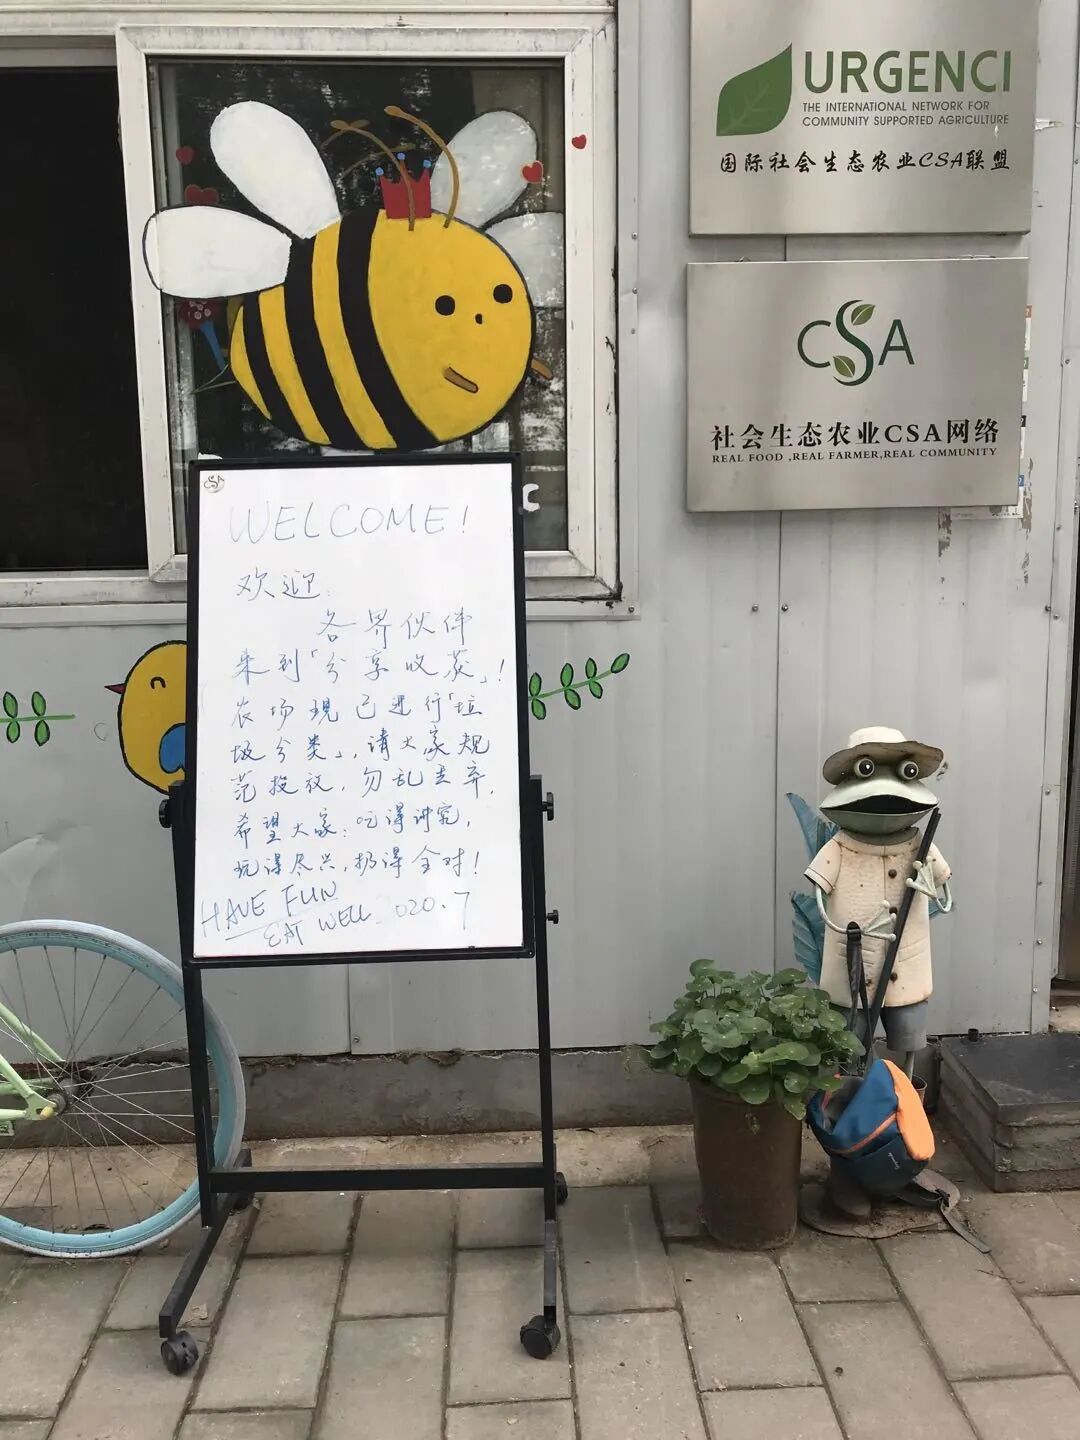 URGENCI
THE INTERNATIONAL NETWORK FOR
COMMUNITY SUPPORTED AGRICULTURE
国际社会生态农业CSA联盟
CSA
社会生态农业CSA网络
REAL FOOD ,REAL FARMER,REAL COMMUNITY
CSA
WELCOME!
欢迎:
各界伙伴
来到「分享收获」!
农场现已进行「垃
圾分类」,请大家规
范投放,勿乱丢弃,
希望大家:吃得讲究,
玩得尽兴,扔得全对!
HAVE FUN
EAT WELL 020.7